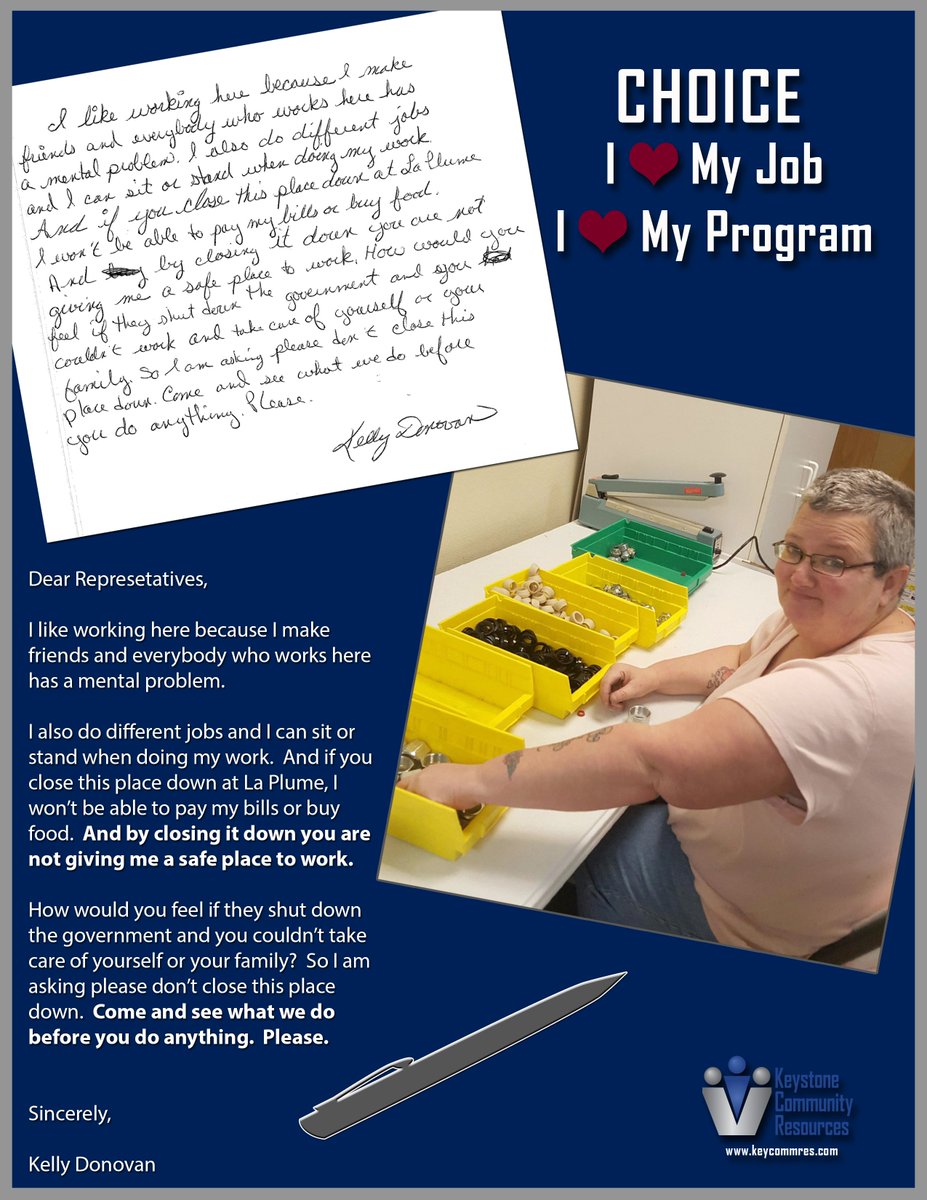 I like working here because I make
friends and everybody who works here has
a mental problem. I also do different jobs
and I can sit or stand when doing my work.
And if you close this place down at La Plume
I won't be able to pay my bills or buy food.
And by closing it down you are not
giving me a safe place to work. How would you
feel if they shut down the government and you
couldn't work and take care of yourself or your
family. So I am asking please don't close this
place down. Come and see what we do before
you do anything. Please.
Kelly Donovan
CHOICE
I ❤ My Job
I ❤ My Program
Dear Represetatives,
I like working here because I make
friends and everybody who works here
has a mental problem.
I also do different jobs and I can sit or
stand when doing my work. And if you
close this place down at La Plume, I
won't be able to pay my bills or buy
food. And by closing it down you are
not giving me a safe place to work.
How would you feel if they shut down
the government and you couldn't take
care of yourself or your family? So I am
asking please don't close this place
down. Come and see what we do
before you do anything. Please.
Sincerely,
Kelly Donovan
Keystone
Community
Resources
www.keycommres.com